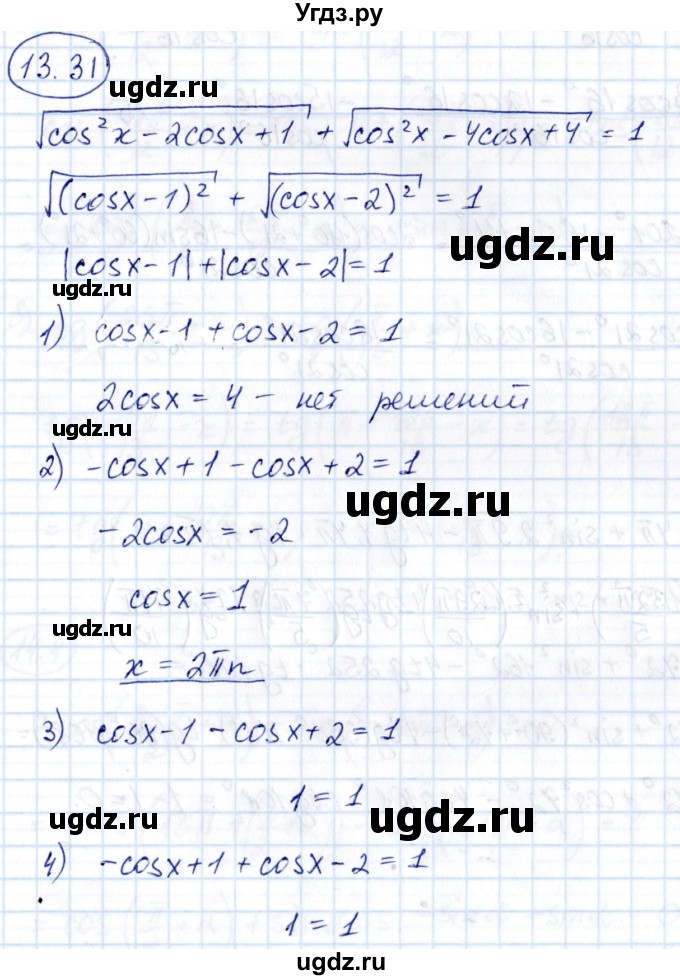 Угдз.ру
13.31
ugdz.ru
√(cos²x - 2cosx + 1) + √(cos²x - 4cosx + 4) = 1
√((cosx - 1)²) + √((cosx - 2)²) = 1
ugdz.ru
|cosx - 1| + |cosx - 2| = 1
ugdz.ru
1) cosx - 1 + cosx - 2 = 1
2cosx = 4 - нет решений
ugdz.ru
2) -cosx + 1 - cosx + 2 = 1
ugdz.ru
-2cosx = -2
cosx = 1
ugdz.ru
x = 2πn
3) cosx - 1 - cosx + 2 = 1
1 = 1
ugdz.ru
ugdz.ru
4) -cosx + 1 + cosx - 2 = 1
1 = 1
ugdz.ru